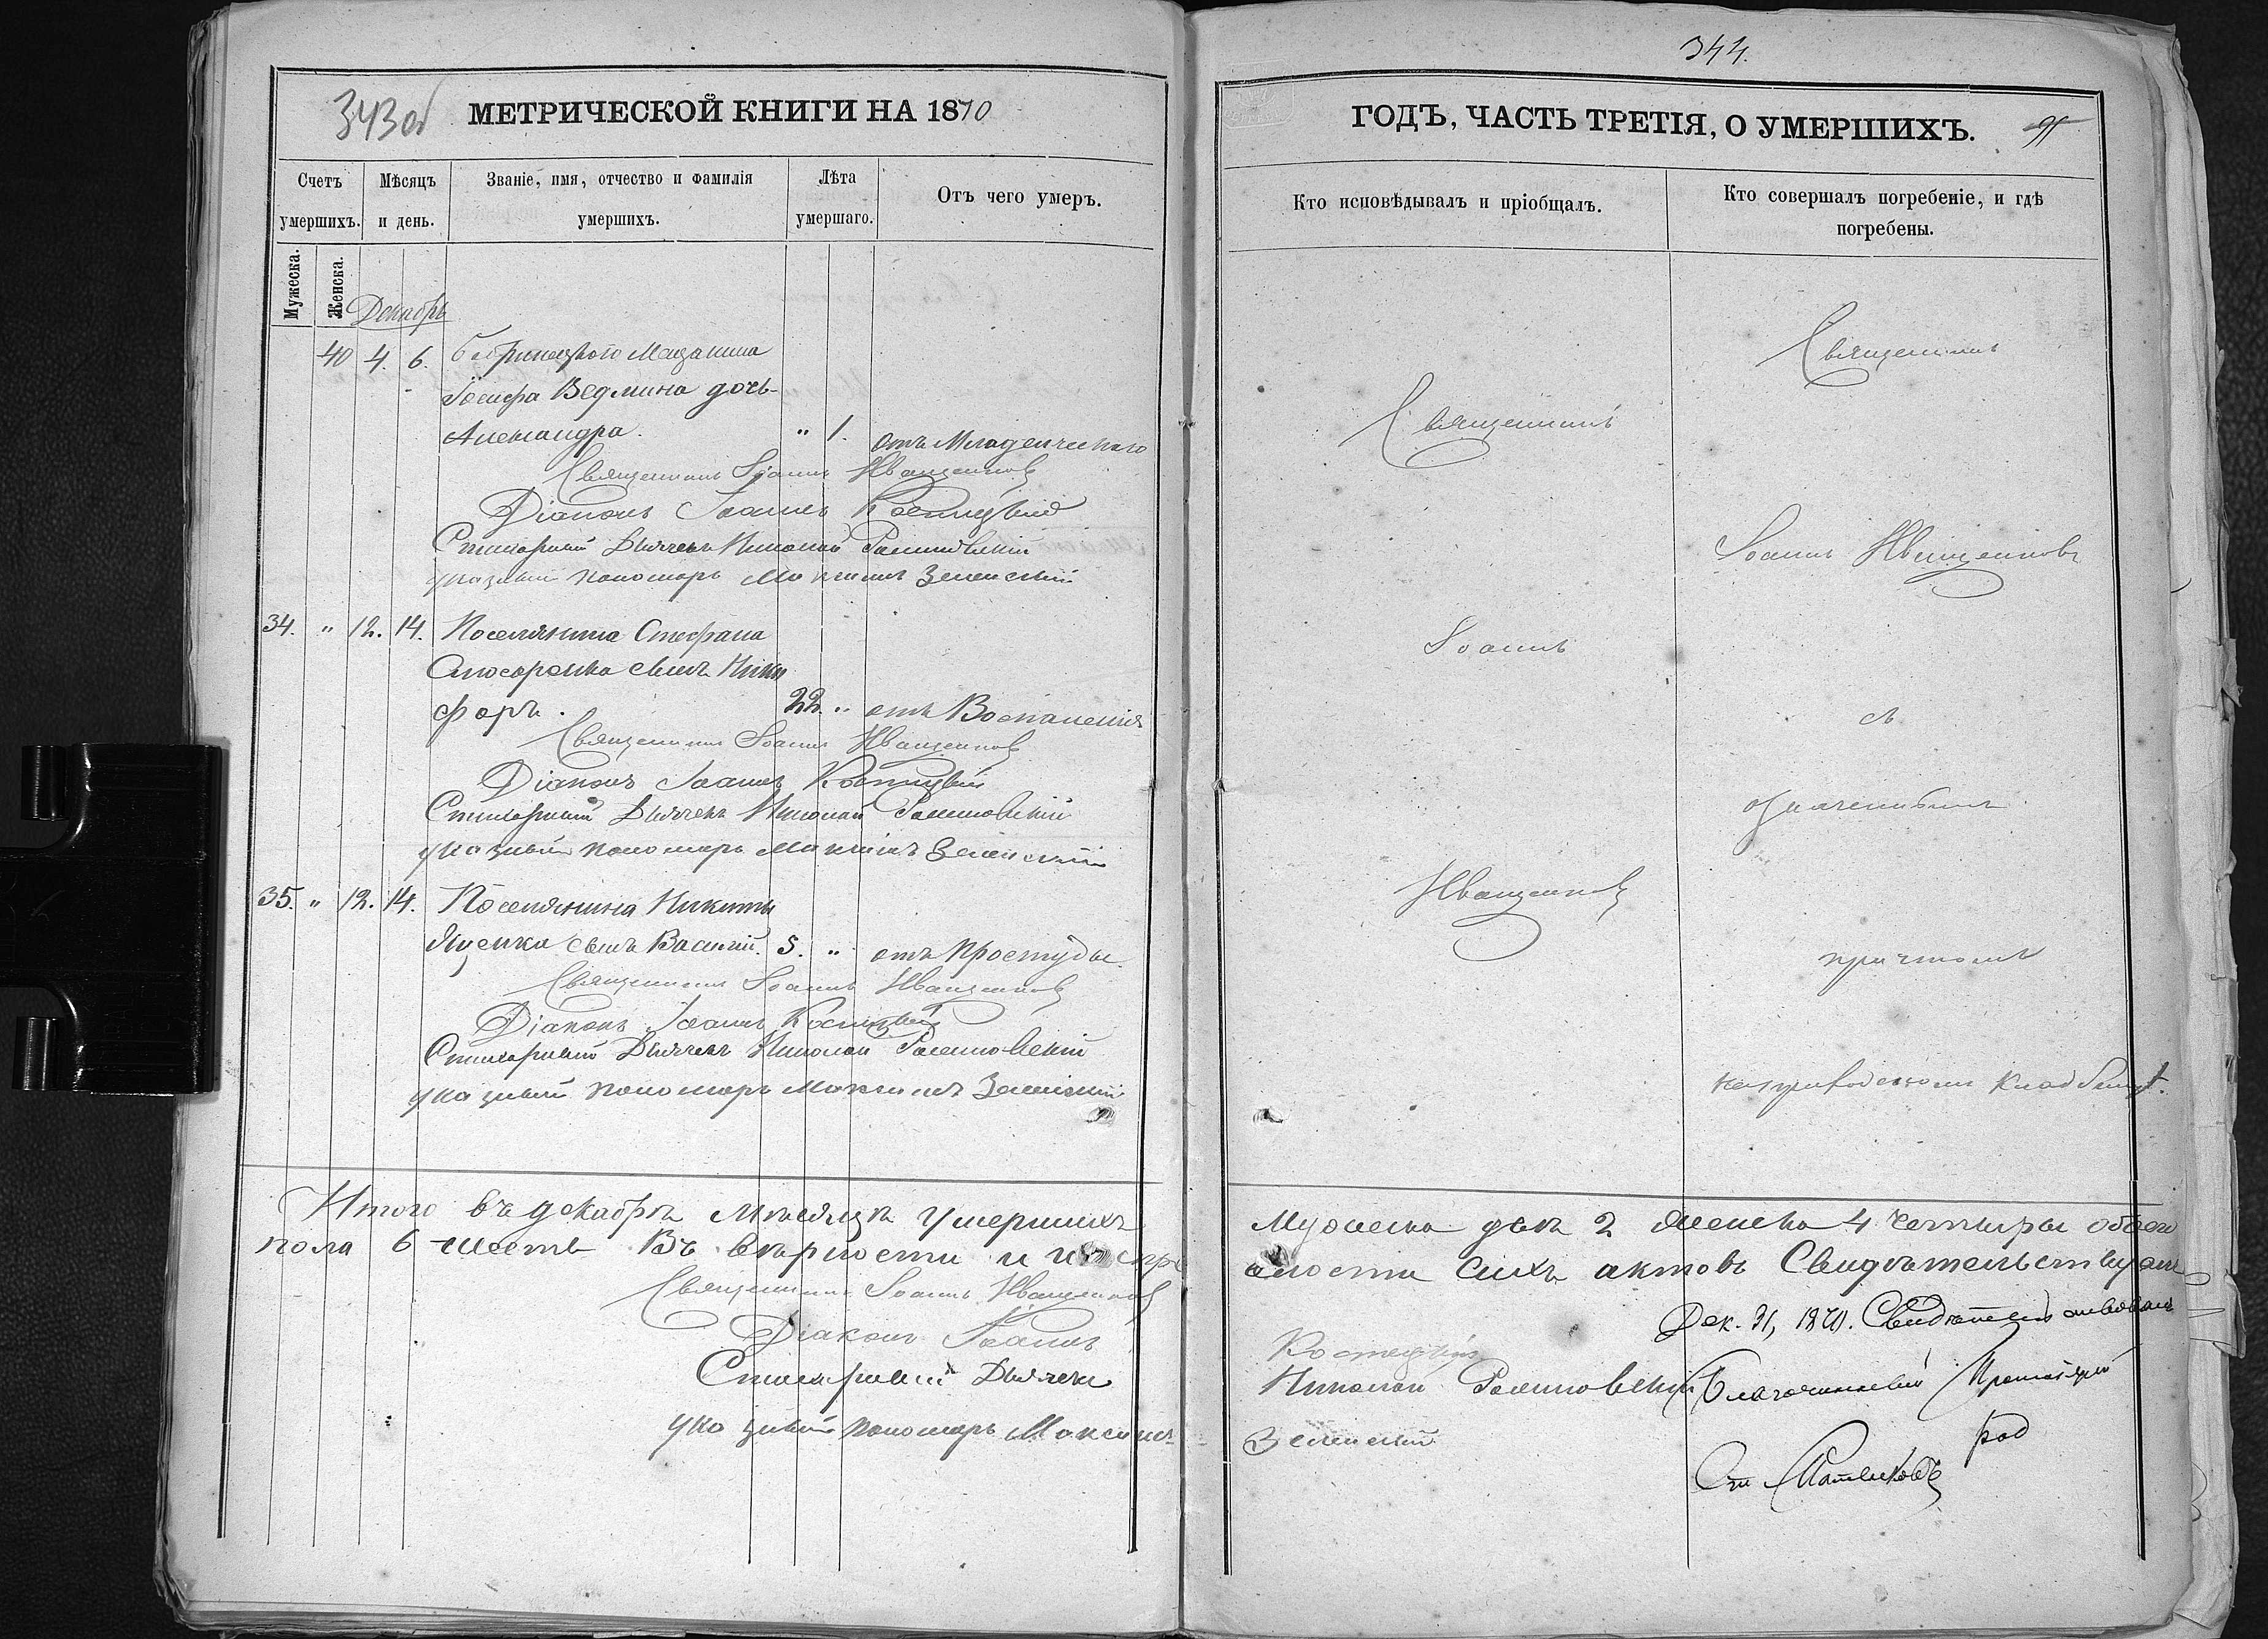 343об
МЕТРИЧЕСКОЙ КНИГИ НА 1870
Счетъ умершихъ.
Мѣсяцъ и день.
Званіе, имя, отчество и фамилія умершихъ.
Лѣта умершаго.
Отъ чего умеръ.
Мужеска.
Женска.
Декабрь
40 4. 6. Бобринецкого Мещанина
Іосифа Ведмина дочь
Александра. " 1. отъ Младенческаго
Священникъ Іоаннъ Иващенковъ
Діаконъ Іоаннъ Костецкій
Стихарный Дьячекъ Николай
указный пономарь Максимъ Зеленскій
34. " 12. 14. Поселянина Стефана
Слюсаренка сынъ Ники
форъ. 22. " отъ Воспаленія
Священникъ Іоаннъ Иващенковъ
Діаконъ Іоаннъ Костецкій
Стихарный Дьячекъ Николай
указный пономарь Максимъ Зеленскій
35. " 12. 14. Поселянина Никиты
Яценка сынъ Василій. 5. " отъ простуды.
Священникъ Іоаннъ Иващенковъ
Діаконъ Іоаннъ Костецкій
Стихарный Дьячекъ Николай
указный пономарь Максимъ Зеленскій
Итого въ декабрѣ мѣсяцѣ умершихъ
пола 6 шесть Въ вѣрности и
Священникъ Іоаннъ Иващенковъ
Діаконъ Іоаннъ
Стихарный Дьячекъ
указный пономарь Максимъ
344.
ГОДЪ, ЧАСТЬ ТРЕТІЯ, О УМЕРШИХЪ.
Кто исповѣдывалъ и пріобщалъ.
Кто совершалъ погребеніе, и гдѣ погребены.
Священникъ
Іоаннъ
Иващенковъ
Священникъ
Іоаннъ Иващенковъ
съ
означеннымъ
причтомъ
на приходскомъ кладбищѣ.
Мужеска два 2 женска 4 четыри обоего
сихъ актовъ Свидѣтельствуемъ
Дек. 31, 1870. Свидѣтельствовалъ
Костецкій
Николай
Благочинный Протоіерей
Зеленскій